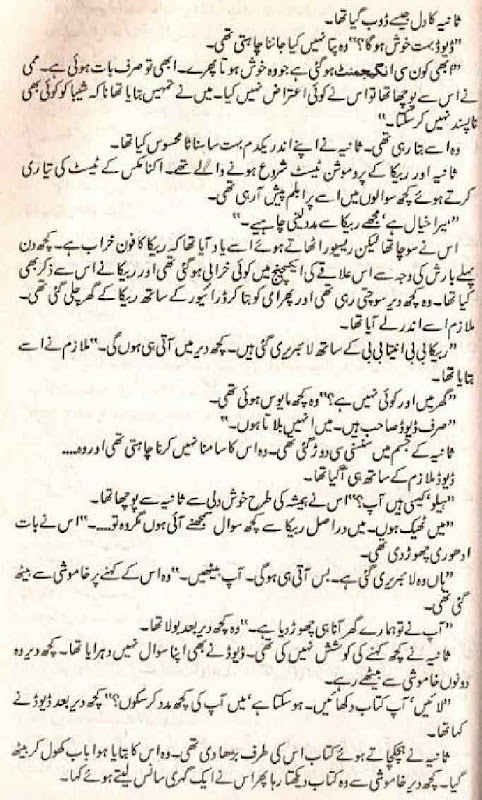 ثانیہ کا دل جیسے ڈوب گیا تھا۔
”ڈیوڈ بہت خوش ہوگا؟“ وہ پتا نہیں کیا جاننا چاہتی تھی۔
”ابھی کون سی انگیجمنٹ ہو گئی ہے جو وہ خوش ہوتا پھرے۔ ابھی تو صرف بات ہوئی ہے۔ ممی
نے اس سے پوچھا تھا تو اس نے کوئی اعتراض نہیں کیا۔ میں نے تمہیں بتایا تھا نا کہ شیبا کو کوئی بھی
ناپسند نہیں کر سکتا۔“
وہ اسے بتا رہی تھی۔ ثانیہ نے اپنے اندر یکدم بہت سا سناٹا محسوس کیا تھا۔
ثانیہ اور ربیکا کے پروموشن ٹیسٹ شروع ہونے والے تھے۔ اکنامکس کے ٹیسٹ کی تیاری
کرتے ہوئے کچھ سوالوں میں اسے پرابلم پیش آ رہی تھی۔
”میرا خیال ہے‘ مجھے ربیکا سے مدد لینی چاہیے۔“
اس نے سوچا تھا لیکن ریسیور اٹھاتے ہوئے اسے یاد آیا تھا کہ ربیکا کا فون خراب ہے۔ کچھ دن
پہلے بارش کی وجہ سے اس علاقے کی ایکسچینج میں کوئی خرابی ہو گئی تھی اور ربیکا نے اس سے ذکر بھی
کیا تھا۔ وہ کچھ دیر سوچتی رہی تھی اور پھر امی کو بتا کر ڈرائیور کے ساتھ ربیکا کے گھر چلی گئی تھی۔
ملازم اسے اندر لے آیا تھا۔
”ربیکا بی بی انیتا بی بی کے ساتھ لائبریری گئی ہیں۔ کچھ دیر میں آتی ہی ہوں گی۔“ ملازم نے اسے
بتایا تھا۔
”گھر میں اور کوئی نہیں ہے؟“ وہ کچھ مایوس ہوئی تھی۔
”صرف ڈیوڈ صاحب ہیں۔ میں انہیں بلاتا ہوں۔“
ثانیہ کے جسم میں سنسنی سی دوڑ گئی تھی۔ وہ اس کا سامنا نہیں کرنا چاہتی تھی اور وہ....
ڈیوڈ ملازم کے ساتھ ہی آ گیا تھا۔
”ہیلو‘ کیسی ہیں آپ؟“ اس نے ہمیشہ کی طرح خوش دلی سے ثانیہ سے پوچھا تھا۔
”میں ٹھیک ہوں۔ میں دراصل ربیکا سے کچھ سوال سمجھنے آئی ہوں مگر وہ تو....۔“ اس نے بات
ادھوری چھوڑ دی تھی۔
”ہاں وہ لائبریری گئی ہے۔ بس آتی ہی ہوگی۔ آپ بیٹھیں۔“ وہ اس کے کہنے پر خاموشی سے بیٹھ
گئی تھی۔
”آپ نے تو ہمارے گھر آنا ہی چھوڑ دیا ہے۔“ وہ کچھ دیر بعد بولا تھا۔
ثانیہ نے کچھ کہنے کی کوشش نہیں کی تھی۔ ڈیوڈ نے بھی اپنا سوال نہیں دہرایا تھا۔ کچھ دیر وہ
دونوں خاموشی سے بیٹھے رہے۔
”لائیں‘ آپ کتاب دکھائیں۔ ہو سکتا ہے‘ میں آپ کی کچھ مدد کر سکوں؟“ کچھ دیر بعد ڈیوڈ نے
کہا تھا۔
ثانیہ نے ہچکچاتے ہوئے کتاب اس کی طرف بڑھا دی تھی۔ وہ اس کا بتایا ہوا باب کھول کر بیٹھ
گیا۔ کچھ دیر خاموشی سے وہ کتاب دیکھتا رہا پھر اس نے ایک گہری سانس لیتے ہوئے کہا۔